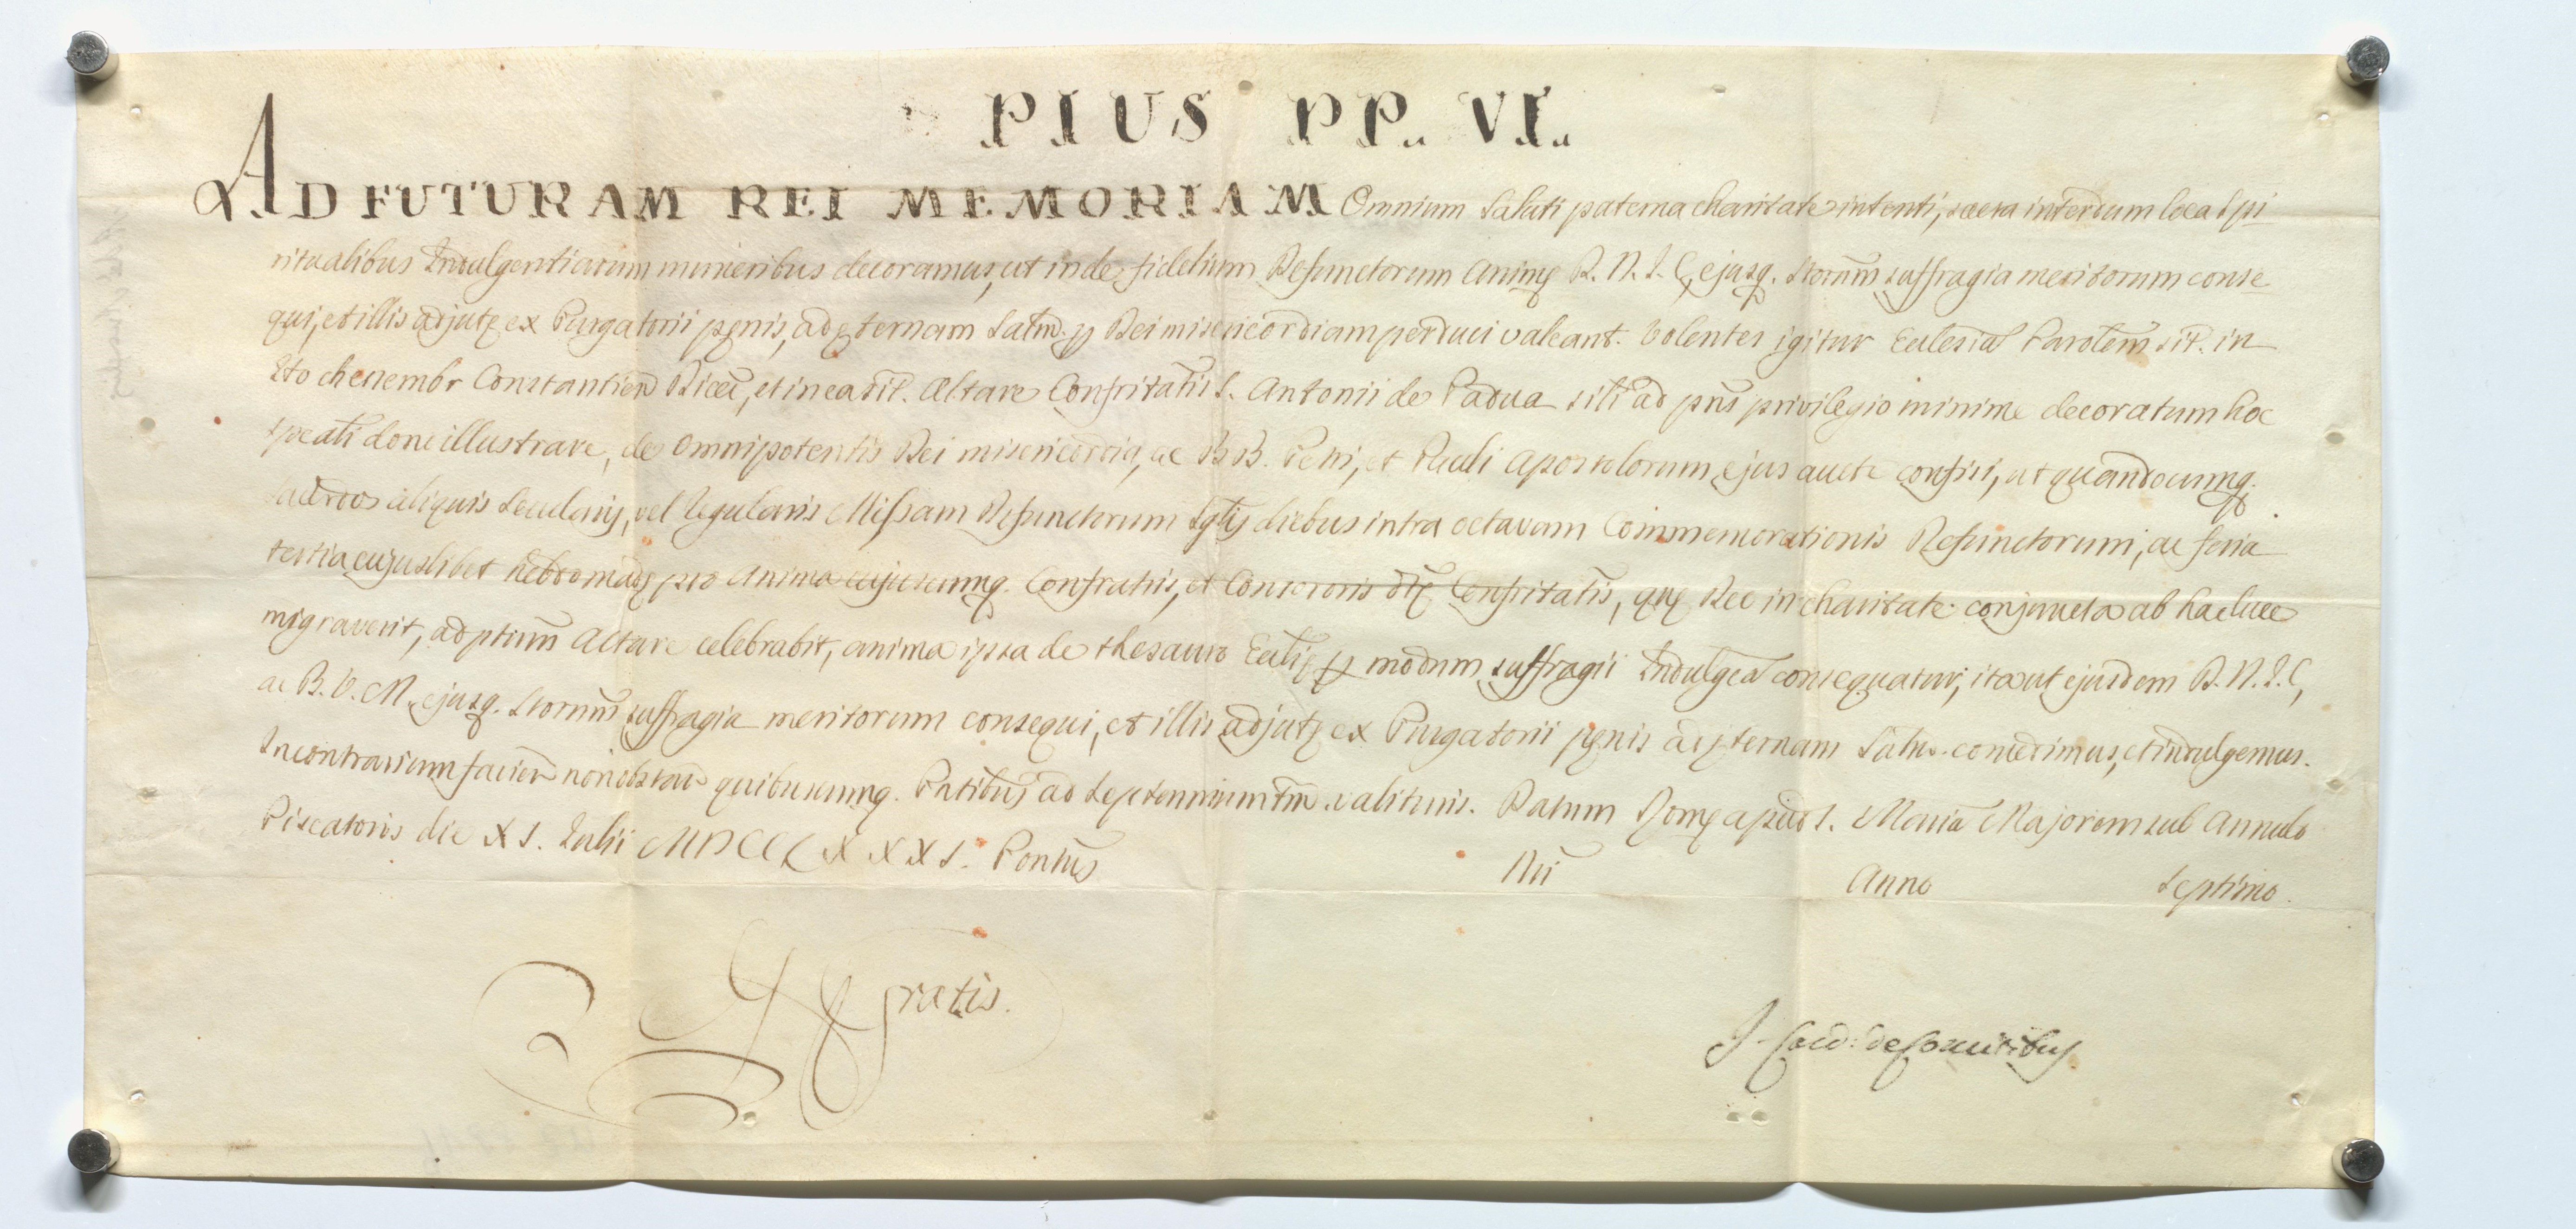 PIUS PP. VI.
AD FUTURAM REI MEMORIAM Omnium Saluti paterna charitate intenti, sacra interdum loca Spi
ritualibus Indulgentiarum muneribus decoramus, ut inde fidelium Defunctorum Animę D. N. J. C, ejusq. Storum̄ suffragia meritorum conse
qui, et illis adjutę ex Purgatorii pęnis, ad ęternam Salm̄ ꝑ Dei misericordiam perduci valeant. Volentes igitur Ecclesiā Parolem̄ sit. in
Sto Constantien Dioeć, et in ea sit. Altare Confritatis̄ S. Antonii de Padua ad pns̄ privilegio minime decoratum hoc
speali done illustrare, de Omnipotentis Dei misericordia, ac BB. Petri, et Pauli Apostolorum ejus aucte confisi, ut quandocumq.
Sacerdos aliquis Secularis, vel Regularis Missam Defunctorum diebus intra octavam Commemorationis Defunctorum, ac feria
tertia cujuslibet hebdomadę pro Anima cujuscumq. Confratris, et Consororis dtę Confritatis̄, quę Deo in charitate conjuncta ab hac luce
migraverit, ad Altare celebrabit, anima ipsa de thesauro Ecclię ꝑ modum suffragii Indulgeā consequatur, ita ut ejusdem D. N. J. C,
ac B. V. M. ejusq. Storum̄ suffragia meritorum consequi, et illis adjutę ex Purgatorii pęnis ad ęternam Salm. concedimus, et indulgemus.
In contrarium facien non obstan quibuscumq. ad Septennium tm̄ valituris. Datum Romę apud S. Mariā Majorem sub Annulo
Piscatoris die XI. Julii MDCCLXXXI. Pontus̄ Nri̅ Anno Septimo.
Gratis.
J. Card: de Comitibus